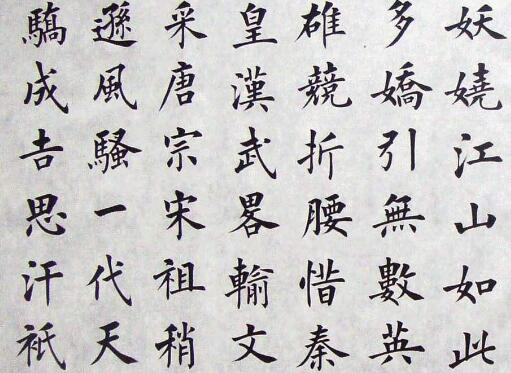 妖嬈江山如此
多嬌引無數英
雄競折腰惜秦
皇漢武畧輸文
采唐宗宋祖稍
遜風騷一代天
驕成吉思汗祇